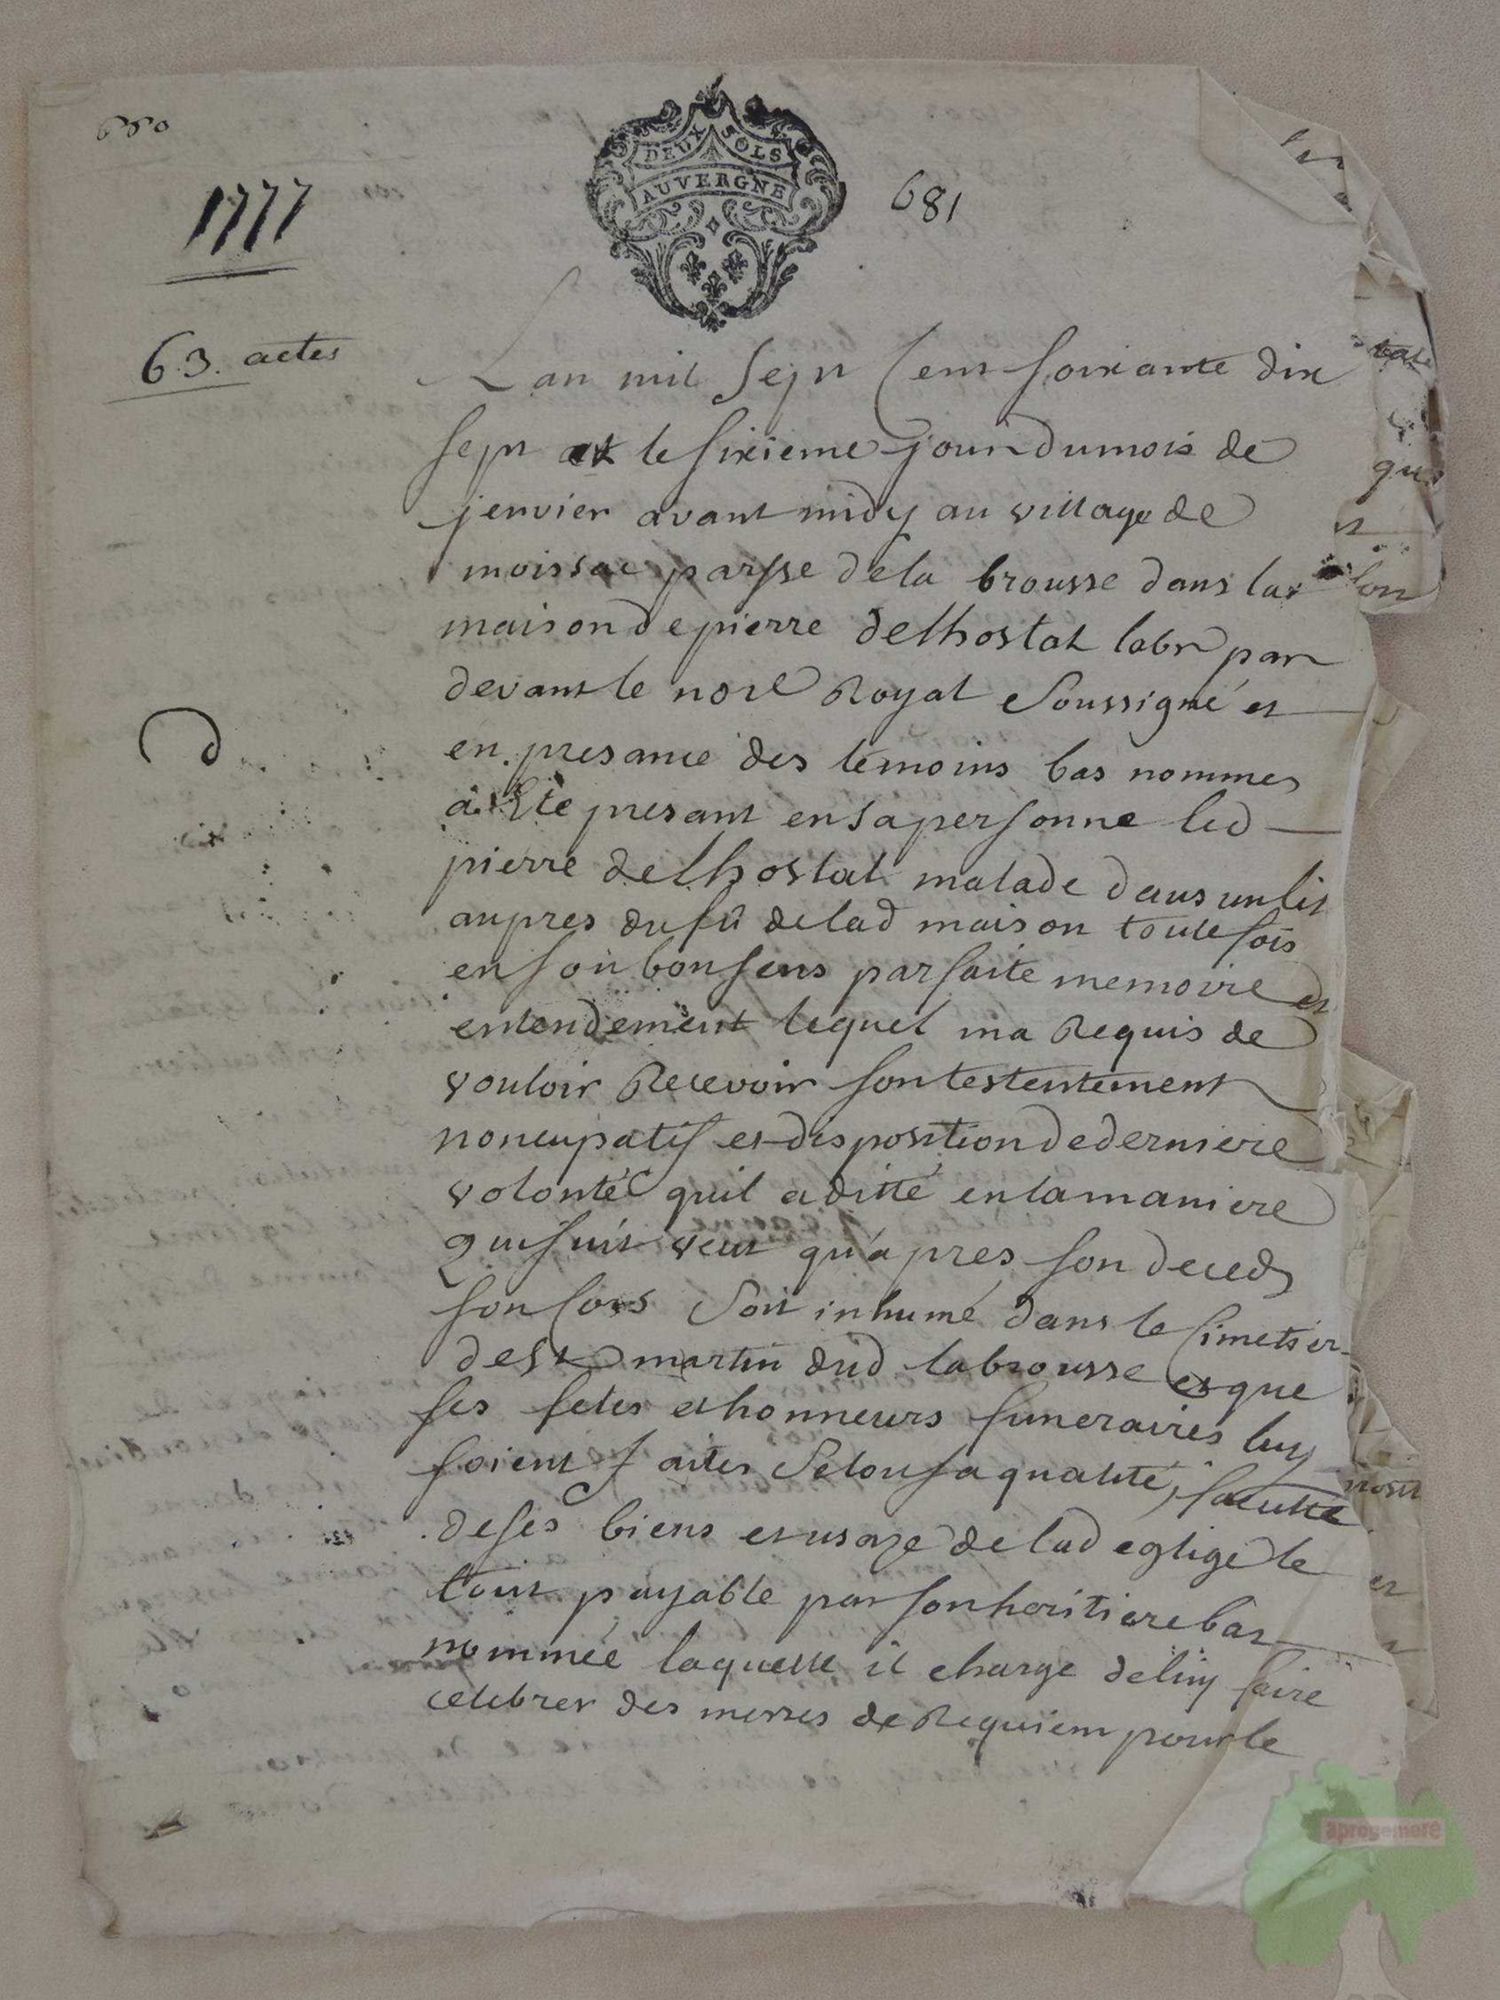 680
1777
63. actes
DEUX SOLS
AUVERGNE
681
Lan mil sept cent soixante dix
sept et le sixieme jour du mois de
jenvier avant midy au village de
moissac parsse dela brousse dans la
maison de pierre delhostat labr par
devant le nore Royal soussigné et
en presance des temoins bas nommes
a été presant en sa personne led
pierre delhostal malade dans un lit
aupres du fû de lad maison toutefois
en son bon sens parfaite memoire et
entendement lequel ma Requis de
vouloir Recevoir son testentement
noncupatif et disposition de derniere
volonté quil a ditté en la maniere
qui suit veut qu'apres son deced
son cors soit inhumé dans le simetier
de st martin dud labrousse et que
ses fetes et honneurs funeraires luy
soient faites selon sa qualité, faculté
de ses biens et usage de lad eglige le
tout payable par son heritiere bas
nommée laquelle il charge de luy faire
celebrer des messes de Requiem pour le
que
et
son
et
aprogemere